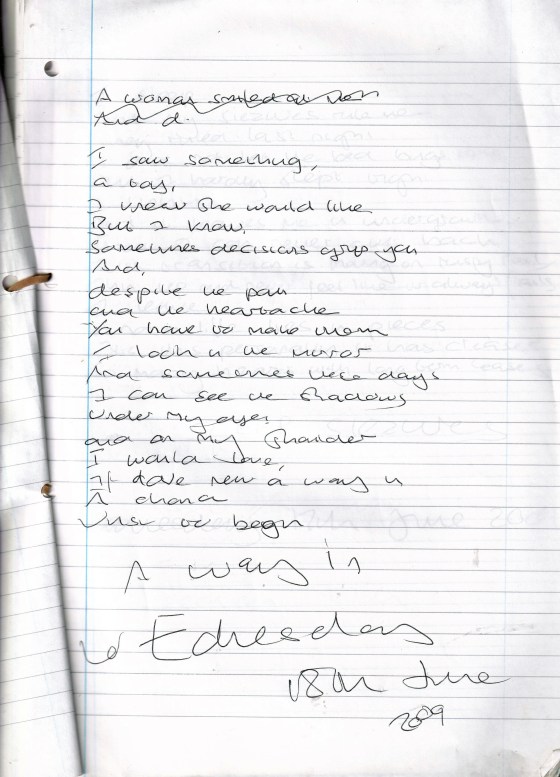 A woman
And d.
I saw something,
a
I knew she would like
But I know,
Sometimes decisions grip you
And,
despite the pain
and the heartache
You have to make them
I look in the mirror
And sometimes these days
I can see the shadows
under my eyes
and on my shoulder
I would love,
a way in
A chance
Just to begin
A way in
Wednesday
18th June
2009